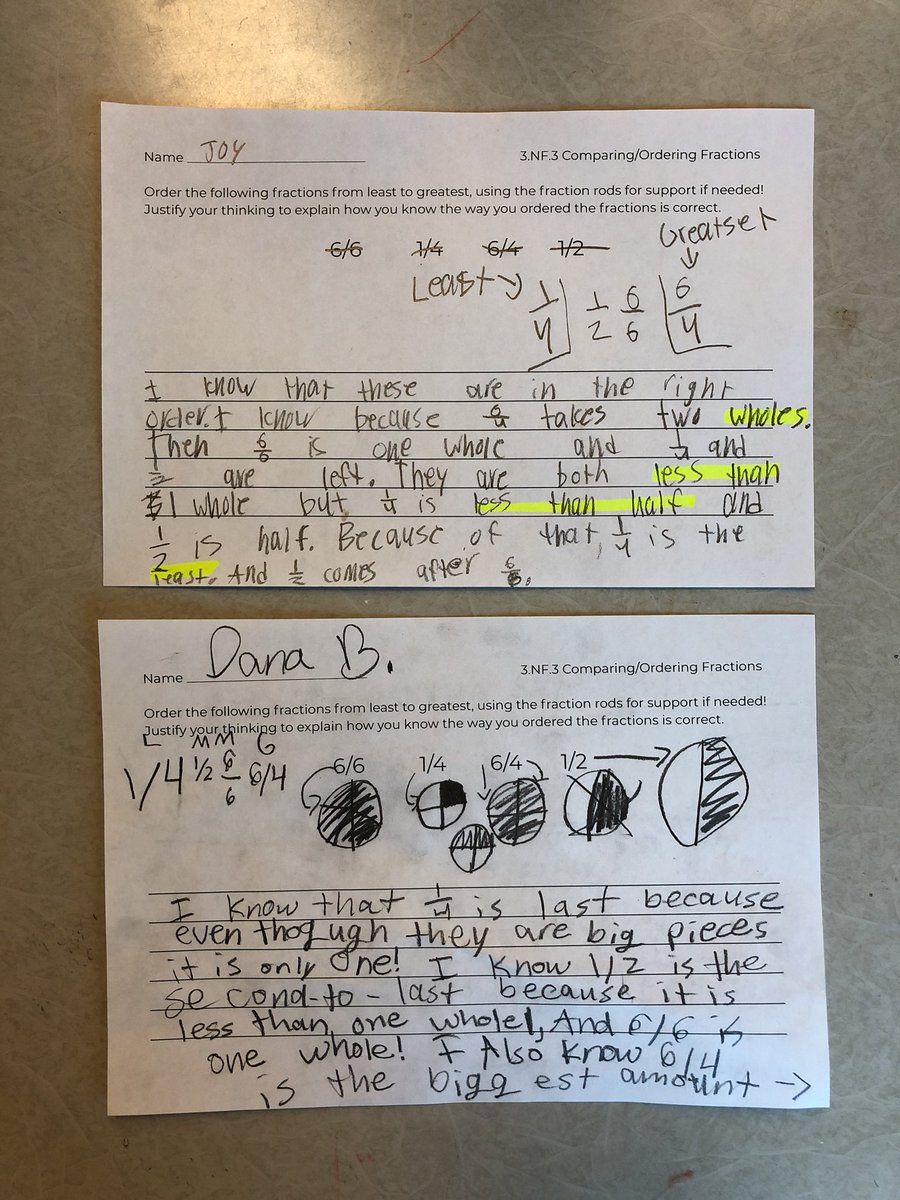 Name JOY
3.NF.3 Comparing/Ordering Fractions
Order the following fractions from least to greatest, using the fraction rods for support if needed!
Justify your thinking to explain how you know the way you ordered the fractions is correct.
6/6 1/4 6/4 1/2
Greatset
Least
1/4 1/2 6/6 6/4
I know that these are in the right
order. I know because 6/4 takes two wholes.
Then 6/6 is one whole and 1/4 and
1/2 are left. They are both less than
1 whole but 1/4 is less than half and
1/2 is half. Because of that, 1/4 is the
least. And 1/2 comes after 6/6.
Name Dana B.
3.NF.3 Comparing/Ordering Fractions
Order the following fractions from least to greatest, using the fraction rods for support if needed!
Justify your thinking to explain how you know the way you ordered the fractions is correct.
L M M G
1/4 1/2 6/6 6/4
6/6 1/4 6/4 1/2
I know that 1/4 is last because
even thogugh they are big pieces
it is only one! I know 1/2 is the
second-to-last because it is
less than one whole!, And 6/6 is
one whole! I Also know 6/4
is the biggest amount →